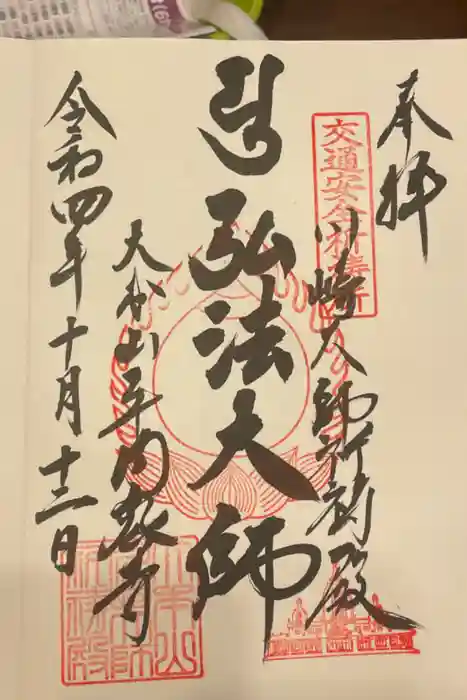 奉拝
交通安全祈祷所
川崎大師祈祷殿
弘法大師
大本山平間寺
令和四年十月十三日